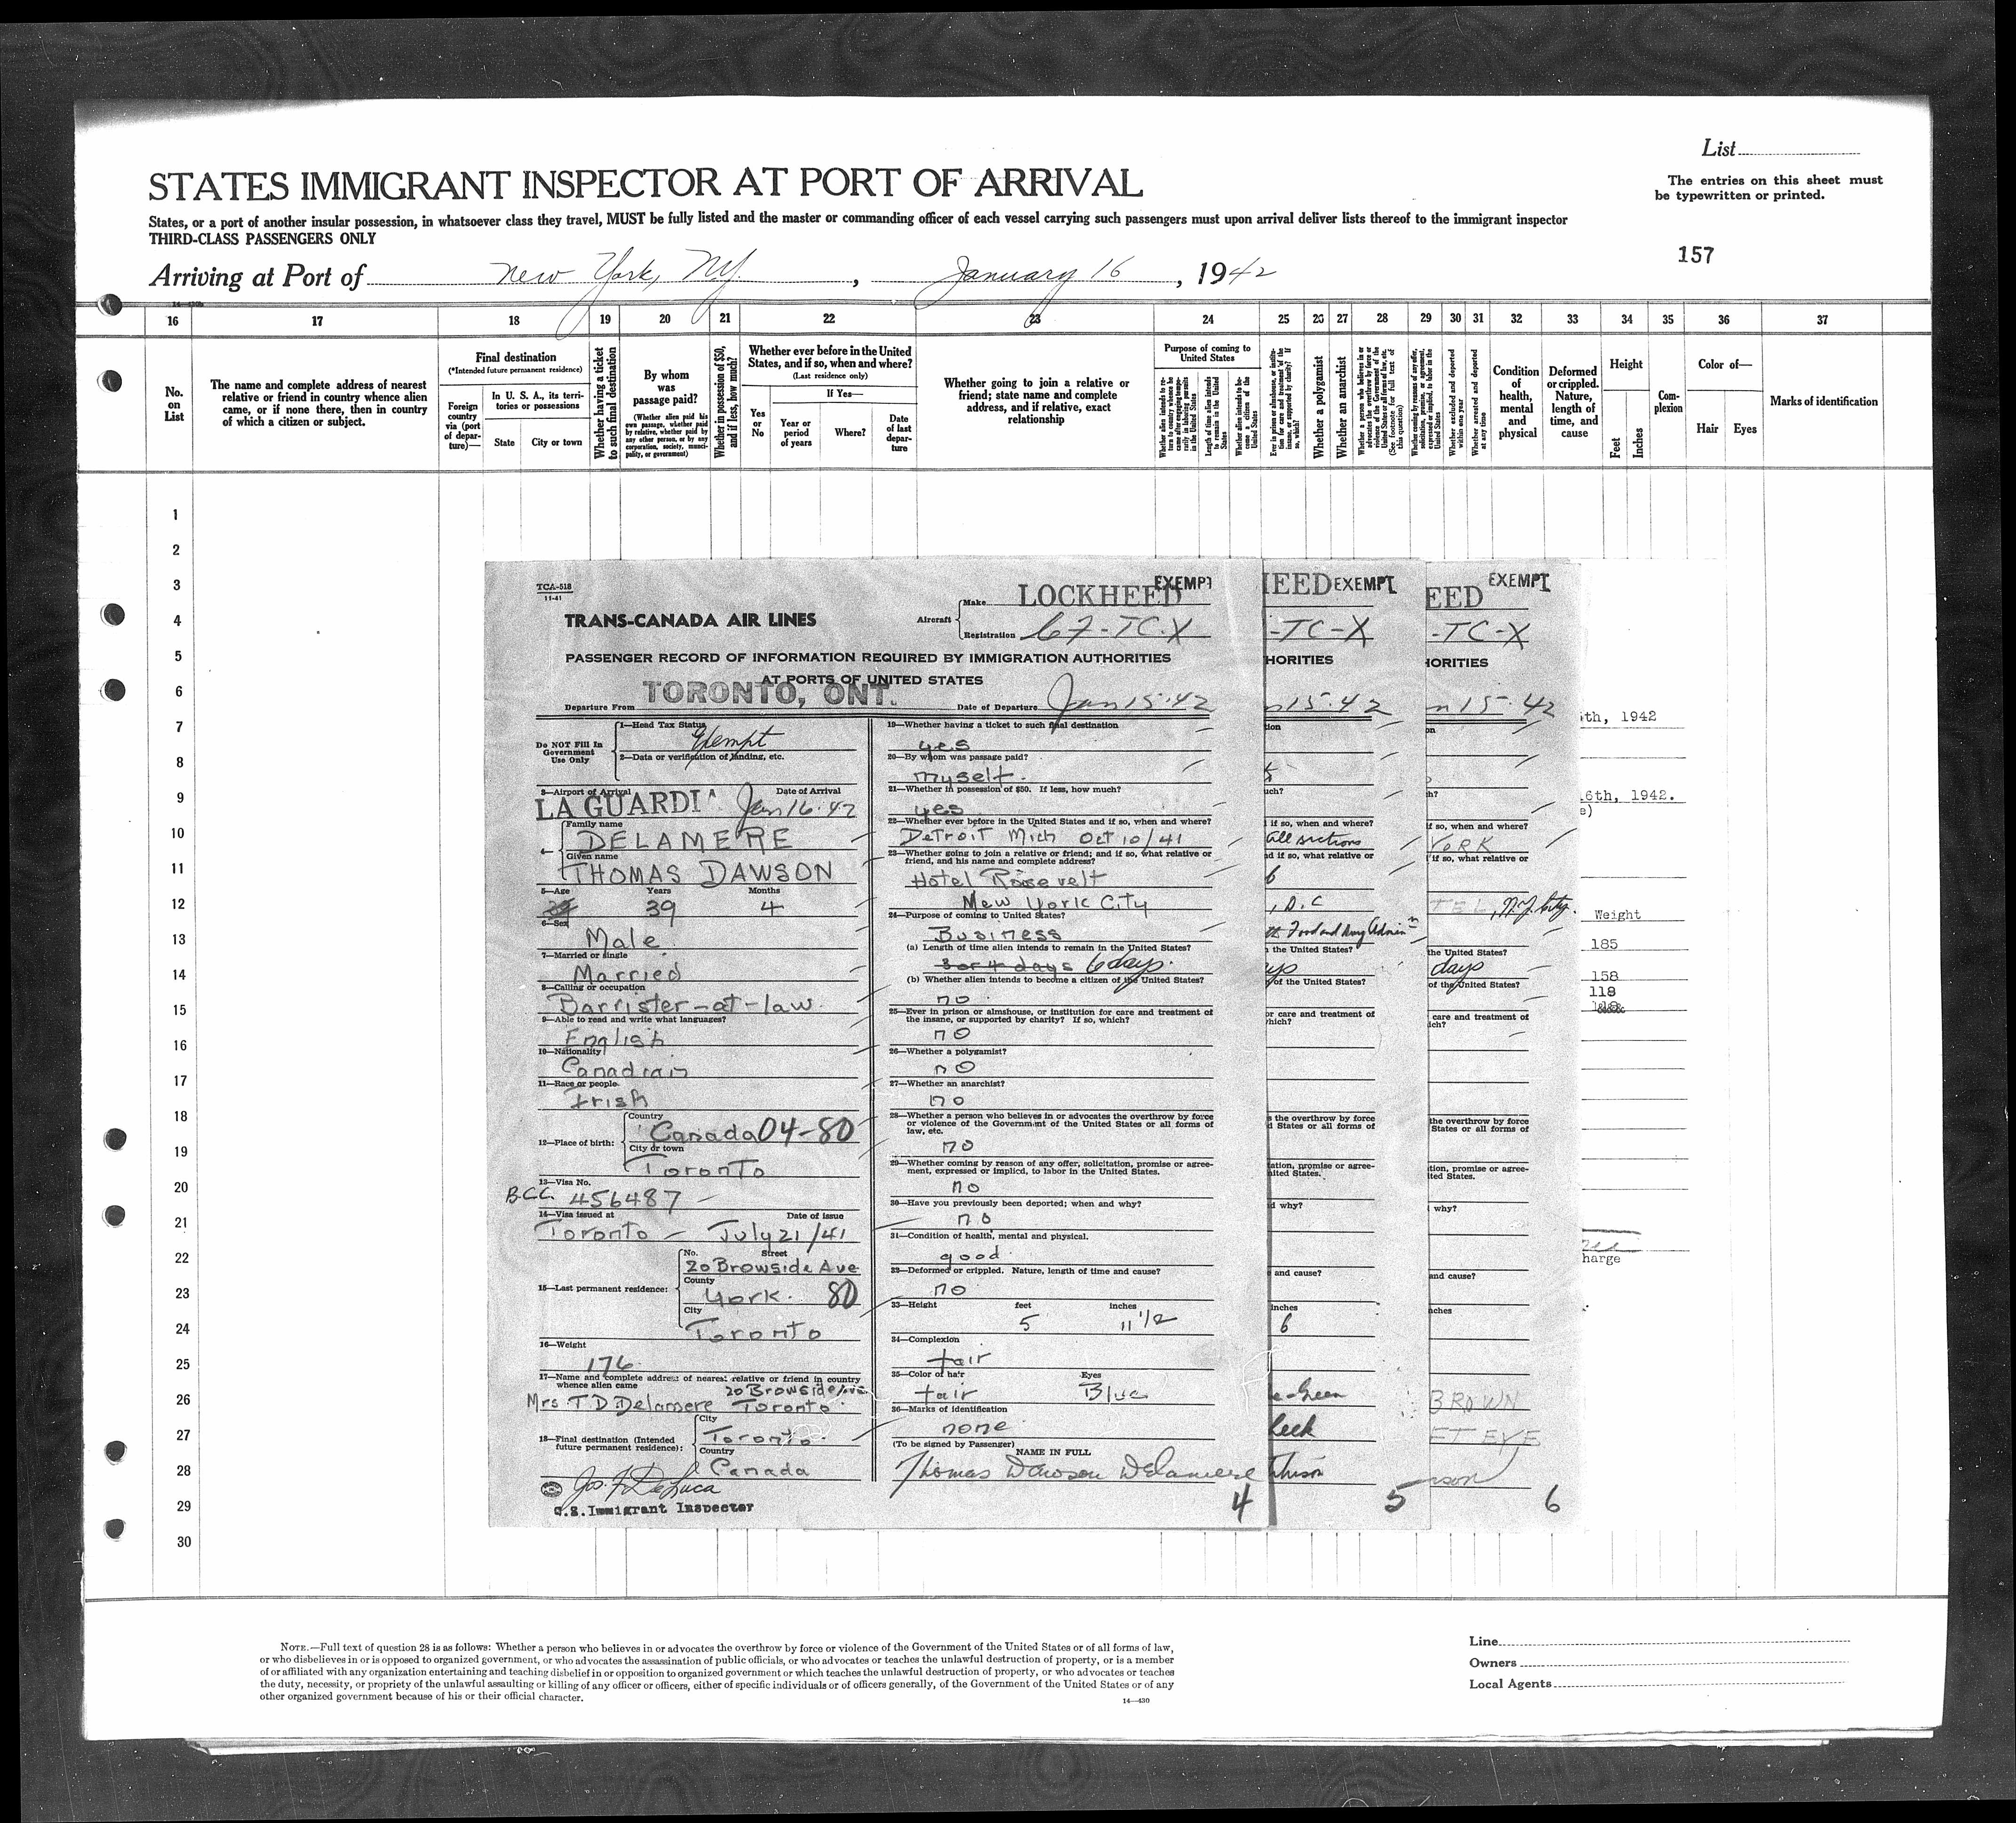 List
STATES IMMIGRANT INSPECTOR AT PORT OF ARRIVAL
The entries on this sheet must
be typewritten or printed.
States, or a port of another insular possession, in whatsoever class they travel, MUST be fully listed and the master or commanding officer of each vessel carrying such passengers must upon arrival deliver lists thereof to the immigrant inspector
THIRD-CLASS PASSENGERS ONLY
157
Arriving at Port of New York, NY. , January 16 , 1942
16 17 18 19 20 21 22 23 24 25 26 27 28 29 30 31 32 33 34 35 36 37
No. on List
The name and complete address of nearest
relative or friend in country whence alien
came, or if none there, then in country
of which a citizen or subject.
Final destination
(*Intended future permanent residence)
Foreign country via (port of departure)—
In U. S. A., its territories or possessions
State
City or town
Whether having a ticket to such final destination
By whom was passage paid?
(Whether alien paid his own passage, whether paid by relative, whether paid by any other person, or by any corporation, society, municipality, or government)
Whether in possession of $50, and if less, how much?
Whether ever before in the United
States, and if so, when and where?
(Last residence only)
Yes or No
If Yes—
Year or period of years
Where?
Date of last departure
Whether going to join a relative or
friend; state name and complete
address, and if relative, exact
relationship
Purpose of coming to United States
Length of time alien intends to remain in the United States
Whether alien intends to become a citizen of the United States
Whether a polygamist
Whether an anarchist
(See footnote for full text of this question)
Whether excluded and deported within one year
Whether arrested and deported at any time
Condition of health, mental and physical
Deformed or crippled. Nature, length of time, and cause
Height
Feet
Inches
Complexion
Color of—
Hair
Eyes
Marks of identification
1
2
3
4
5
6
7
8
9
10
11
12
13
14
15
16
17
18
19
20
21
22
23
24
25
26
27
28
29
30
TCA-518
11-41
TRANS-CANADA AIR LINES
Aircraft
Make LOCKHEED
EXEMPT
Registration 67-TC-X
PASSENGER RECORD OF INFORMATION REQUIRED BY IMMIGRATION AUTHORITIES
AT PORTS OF UNITED STATES
Departure From TORONTO, ONT.
Date of Departure Jan 15·42
Do NOT Fill In
Government
Use Only
1—Head Tax Status
Exempt
2—Data or verification of landing, etc.
3—Airport of Arrival
Date of Arrival
LA GUARDIA Jan 16·42
4—
Family name
DELAMERE
Given name
THOMAS DAWSON
5—Age Years Months
39 4
6—Sex
Male
7—Married or single
Married
8—Calling or occupation
Barrister-at-law
9—Able to read and write what languages?
English
10—Nationality
Canadian
11—Race or people
Irish
12—Place of birth:
Country
Canada 04-80
City or town
Toronto
13—Visa No.
B.C.C. 456487
14—Visa issued at Date of issue
Toronto – July 21/41
15—Last permanent residence:
No. Street
20 Browside Ave
County
York. 80
City
Toronto
16—Weight
176
17—Name and complete address of nearest relative or friend in country
whence alien came
20 Browside Ave
Mrs T D Delamere Toronto
18—Final destination (Intended
future permanent residence):
City
Toronto
Country
Canada
Jos. F. DeLuca
U.S. Immigrant Inspector
19—Whether having a ticket to such final destination
yes
20—By whom was passage paid?
myself.
21—Whether in possession of $50. If less, how much?
yes
22—Whether ever before in the United States and if so, when and where?
Detroit Mich Oct 10/41
23—Whether going to join a relative or friend; and if so, what relative or
friend, and his name and complete address?
Hotel Roosevelt
New York City
24—Purpose of coming to United States?
Business
(a) Length of time alien intends to remain in the United States?
3 or 4 days 6 days.
(b) Whether alien intends to become a citizen of the United States?
no
25—Ever in prison or almshouse, or institution for care and treatment of
the insane, or supported by charity? If so, which?
no
26—Whether a polygamist?
no
27—Whether an anarchist?
no
28—Whether a person who believes in or advocates the overthrow by force
or violence of the Government of the United States or all forms of
law, etc.
no
29—Whether coming by reason of any offer, solicitation, promise or agree-
ment, expressed or implicd, to labor in the United States.
no
30—Have you previously been deported; when and why?
no
31—Condition of health, mental and physical.
good
32—Deformed or crippled. Nature, length of time and cause?
no
33—Height feet inches
5 11 1/2
34—Complexion
fair
35—Color of hair Eyes
fair Blue
36—Marks of identification
none
(To be signed by Passenger)
NAME IN FULL
Thomas Dawson Delamere
4
EED EXEMPT
-TC-X
HORITIES
15·42
if so, when and where?
All sections
if so, what relative or
, D.C
Food and Drug Admin
the United States?
of the United States?
or care and treatment of
hich?
the overthrow by force
States or all forms of
ation, promise or agree-
nited States.
why?
and cause?
inches
6
5
EXEMPT
EED
-TC-X
HORITIES
15·42
if so, when and where?
YORK
if so, what relative or
TEL, N.Y. City.
the United States?
days
of the United States?
care and treatment of
ich?
the overthrow by force
States or all forms of
tion, promise or agree-
ited States.
why?
and cause?
nches
BROWN
ET EYE
rson
6
th, 1942
16th, 1942.
e)
Weight
185
158
118
harge
NOTE.—Full text of question 28 is as follows: Whether a person who believes in or advocates the overthrow by force or violence of the Government of the United States or of all forms of law,
or who disbelieves in or is opposed to organized government, or who advocates the assassination of public officials, or who advocates or teaches the unlawful destruction of property, or is a member
of or affiliated with any organization entertaining and teaching disbelief in or opposition to organized government or which teaches the unlawful destruction of property, or who advocates or teaches
the duty, necessity, or propriety of the unlawful assaulting or killing of any officer or officers, either of specific individuals or of officers generally, of the Government of the United States or of any
other organized government because of his or their official character.
14—430
Line
Owners
Local Agents